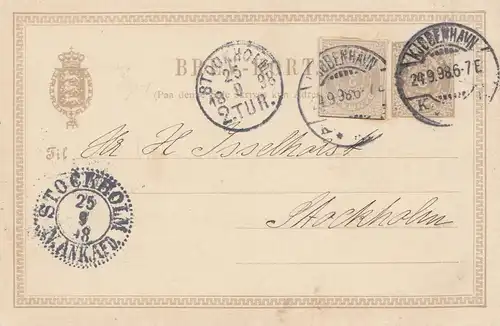 BRE
(Paa denne Side skrives kun Adressen)
STOCKHOLM
25
9
98
2. TUR.
KJØBENHAVN
24.9.98.6-7 E
KJØBENHAVN
24.9.98.6-7 E
K
Til Hr H Isselhorst
Stockholm
STOCKHOLM
25
9